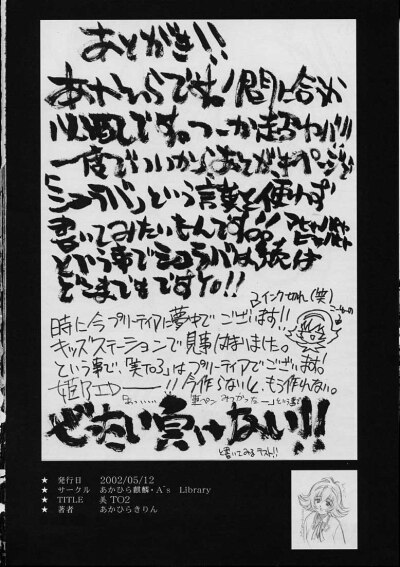 あとがき!!
あかひらです。間に合うか
心配です。つーか超ヤバイ!!
一度でいいからあとがきページで
「シュラバ」という言葉を使わず
書いてみたいもんですな!!
という事でシュラバは続くよ
どこまでもですな!!
インク切れ(笑)
時に今プリーティアに夢中でございます!!
キッズステーションで見事はまいました。
という事で、「笑TO3」はプリーティアでございます。
姫乃ェー!!今作らないと、もう作れない。
ぜったい負けない!!
と書いてみるテスト!!
★ 発行日 2002/05/12
★ サークル あかひら麒麟・A's Library
★ TITLE 美TO2
★ 著者 あかひらきりん